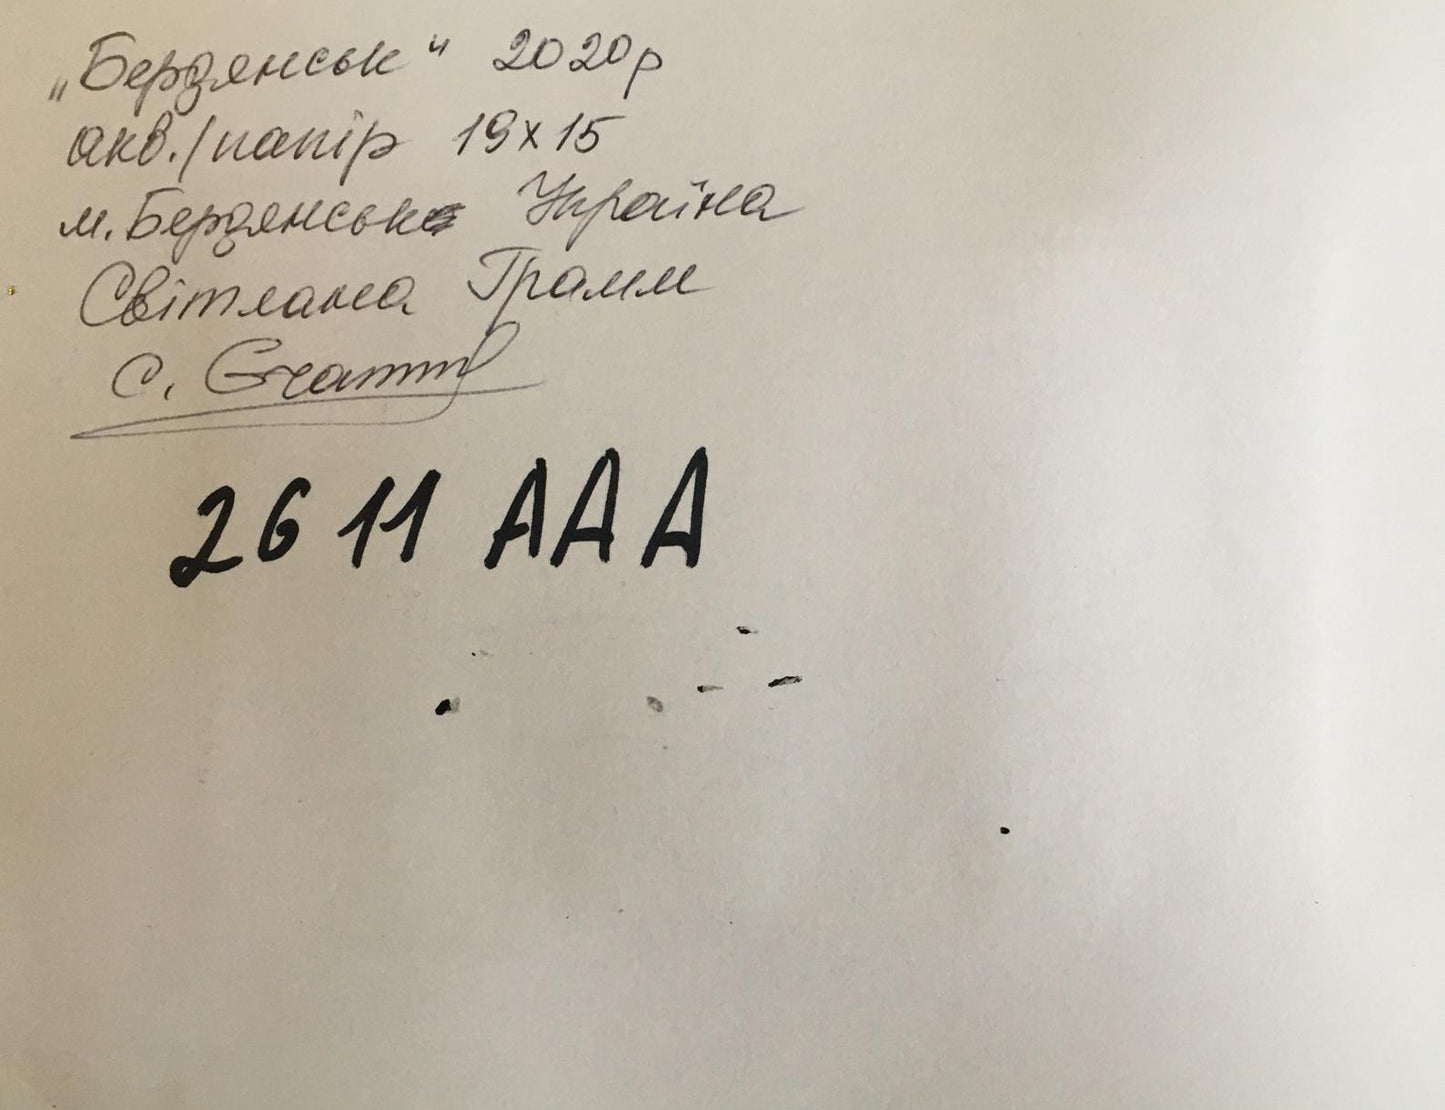 „Бердянськ" 2020р
акв./папір 19х15
м. Бердянськ Україна
Світлана Грамм
С. Gramm
2611 AAA